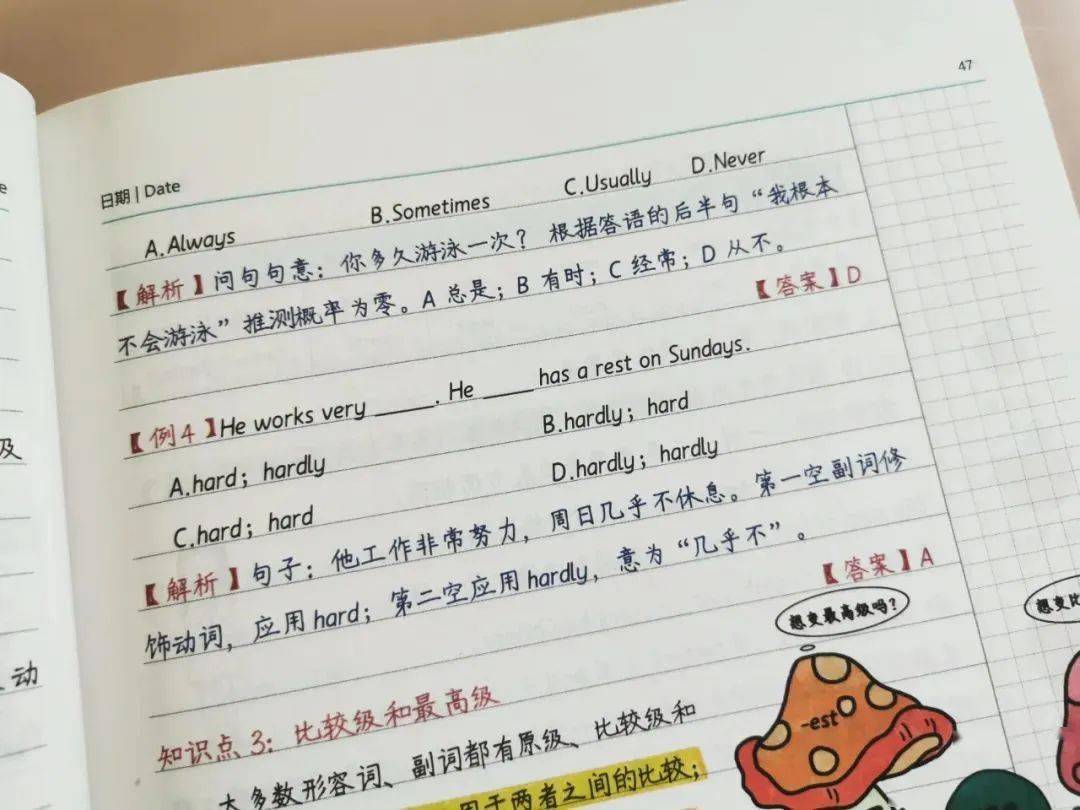 47
日期 | Date
A.Always B.Sometimes C.Usually D.Never
【解析】问句句意：你多久游泳一次？根据答语的后半句“我根本
不会游泳”推测概率为零。A 总是；B 有时；C 经常；D 从不。
【答案】D
【例4】He works very _____. He _____ has a rest on Sundays.
A.hard；hardly B.hardly；hard
C.hard；hard D.hardly；hardly
【解析】句子：他工作非常努力，周日几乎不休息。第一空副词修
饰动词，应用hard；第二空应用hardly，意为“几乎不”。
【答案】A
想变最高级吗？
想变比
-est
知识点3：比较级和最高级
大多数形容词、副词都有原级、比较级和
用于两者之间的比较；
e
及
动